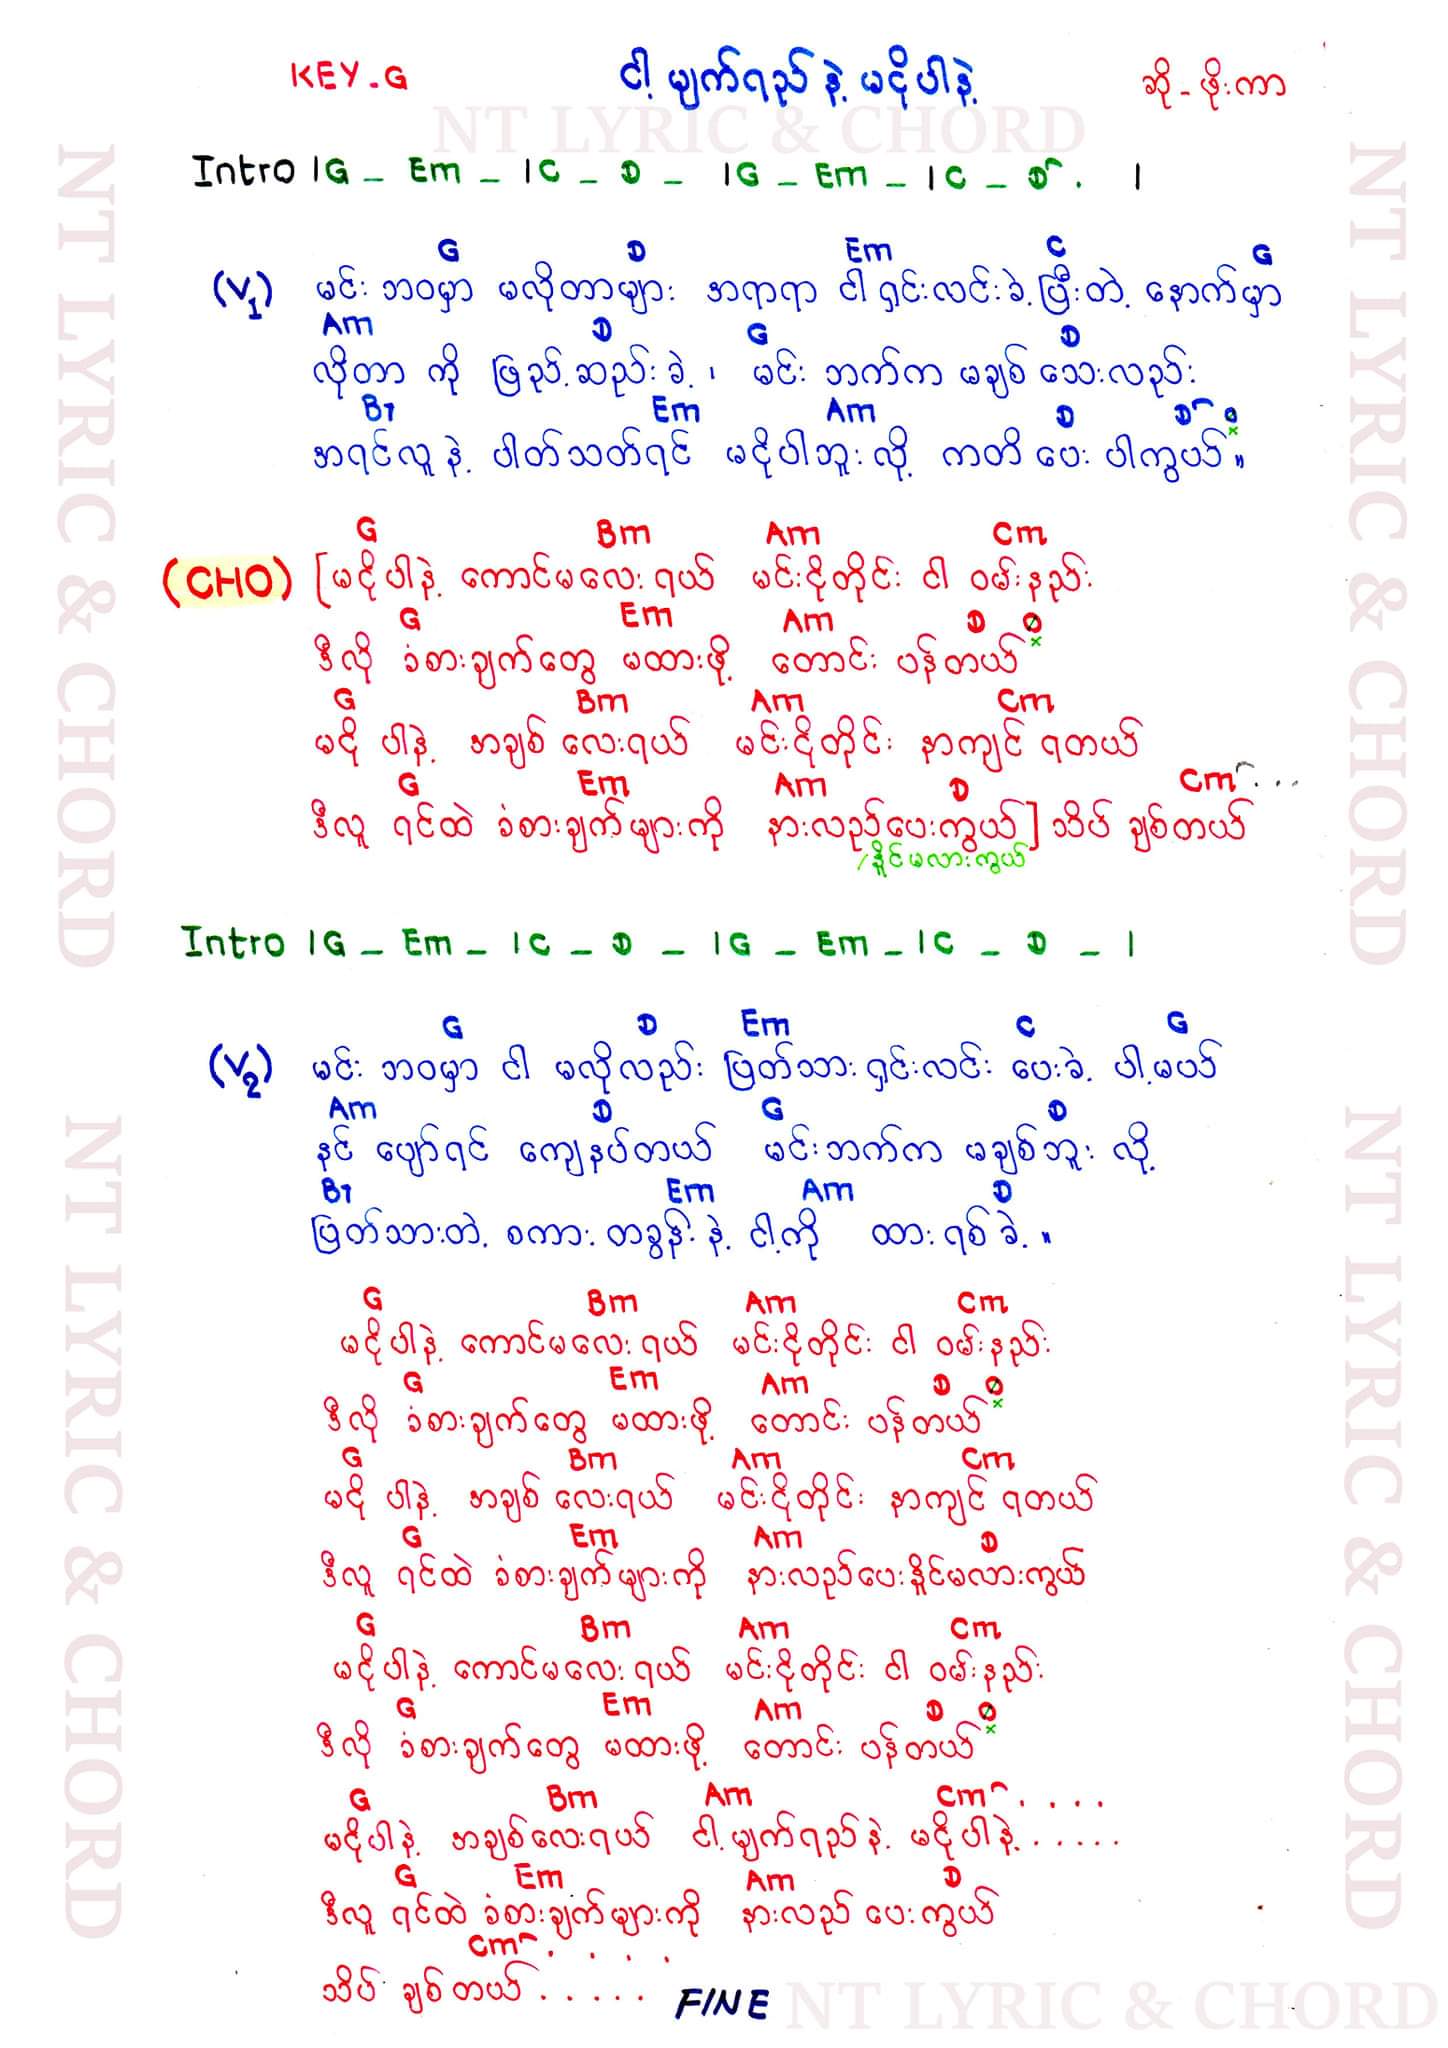 KEY-G ငါ့ မျက်ရည် နဲ့ မငိုပါနဲ့ ဆို - ဖိုးကာ
NT LYRIC & CHORD
Intro | G - Em - | C - D - | G - Em - | C - D . |
G D Em C G
(V1) မင်း ဘဝမှာ မလိုတာများ အရာရာ ငါ ရှင်းလင်းခဲ့ ပြီးတဲ့ နောက်မှာ
Am D G D
လိုတာ ကို ဖြည့်ဆည်းခဲ့ ၊ မင်း ဘက်က မချစ် သေးလည်း
B7 Em Am D D
အရင်လူ နဲ့ ပါတ်သတ်ရင် မငိုပါဘူး လို့ ကတိ ပေး ပါကွယ် ။
G Bm Am Cm
(CHO) [မငိုပါနဲ့ ကောင်မလေး ရယ် မင်းငိုတိုင်း ငါ ဝမ်းနည်း
G Em Am D
ဒီလို ခံစားချက်တွေ မထားဖို့ တောင်း ပန်တယ်
G Bm Am Cm
မငို ပါနဲ့ အချစ် လေးရယ် မင်းငိုတိုင်း နာကျင် ရတယ်
G Em Am D Cm ...
ဒီလူ ရင်ထဲ ခံစားချက်များကို နားလည်ပေးကွယ်] သိပ် ချစ်တယ်
/နိူင်မလားကွယ်
Intro | G - Em - | C - D - | G - Em - | C - D - |
G D Em C G
(V2) မင်း ဘဝမှာ ငါ မလိုလည်း ပြတ်သား ရှင်းလင်း ပေးခဲ့ ပါ့မယ်
Am D G D
နင် ပျော်ရင် ကျေနပ်တယ် မင်းဘက်က မချစ်ဘူး လို့
B7 Em Am D
ပြတ်သားတဲ့ စကား တခွန်း နဲ့ ငါ့ကို ထား ရစ် ခဲ့ ။
G Bm Am Cm
မငိုပါနဲ့ ကောင်မလေး ရယ် မင်းငိုတိုင်း ငါ ဝမ်းနည်း
G Em Am D
ဒီလို ခံစားချက်တွေ မထားဖို့ တောင်း ပန်တယ်
G Bm Am Cm
မငို ပါနဲ့ အချစ် လေးရယ် မင်းငိုတိုင်း နာကျင် ရတယ်
G Em Am D
ဒီလူ ရင်ထဲ ခံစားချက်များကို နားလည်ပေးနိူင်မလားကွယ်
G Bm Am Cm
မငိုပါနဲ့ ကောင်မလေး ရယ် မင်းငိုတိုင်း ငါ ဝမ်းနည်း
G Em Am D
ဒီလို ခံစားချက်တွေ မထားဖို့ တောင်း ပန်တယ်
G Bm Am Cm ....
မငိုပါနဲ့ အချစ်လေးရယ် ငါ့ မျက်ရည်နဲ့ မငိုပါနဲ့ .....
G Em Am D
ဒီလူ ရင်ထဲ ခံစားချက်များကို နားလည် ပေးကွယ်
Cm ....
သိပ် ချစ်တယ် .....
FINE
NT LYRIC & CHORD
NT LYRIC & CHORD
NT LYRIC & CHORD
NT LYRIC & CHORD
NT LYRIC & CHORD